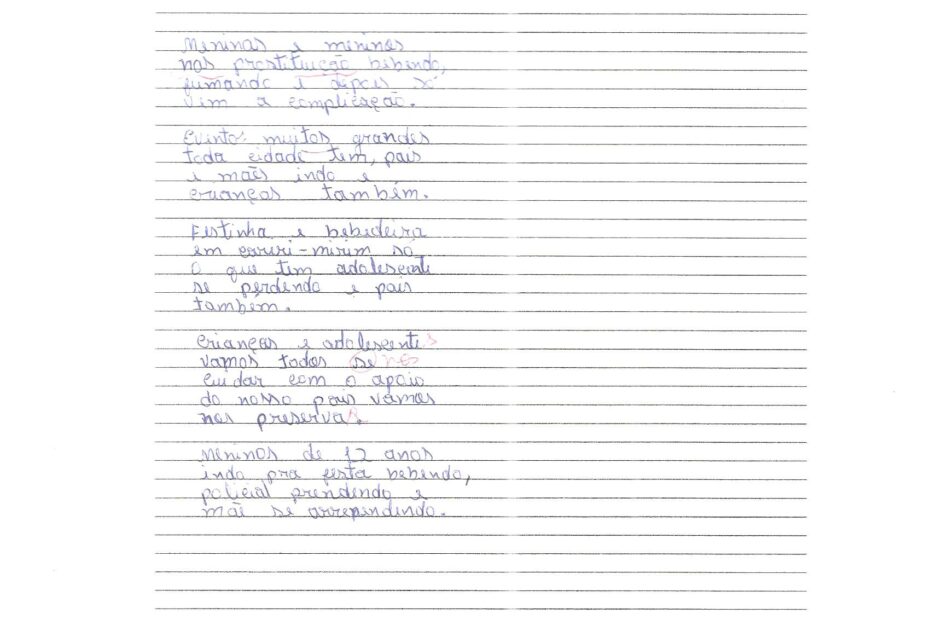 Meninas e meninos
nas prostituição bebendo,
fumando e depois só
vem a complicação.
Evento: muitos grandes
toda cidade tem, pais
e mães indo e
crianças também.
Festinha e bebedeira
em coruri-mirim só
o que tem adolescente
se perdendo e pais
também.
Crianças e adolescentes
vamos todos se nos
cuidar com o apoio
do nosso pais vamos
nos preservar.
Meninos de 12 anos
indo pra festa bebendo,
policial prendendo e
mãe se arrependendo.